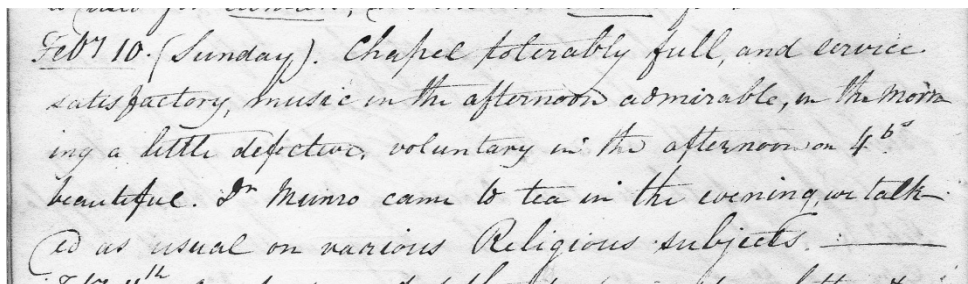 Feby 10. (Sunday). Chapel tolerably full, and service
satisfactory, music in the afternoon admirable, in the morn
ing a little defective, voluntary in the afternoon on 4 bs
beautiful. Dr Munro came to tea in the evening, we talk-
ed as usual on various Religious subjects.